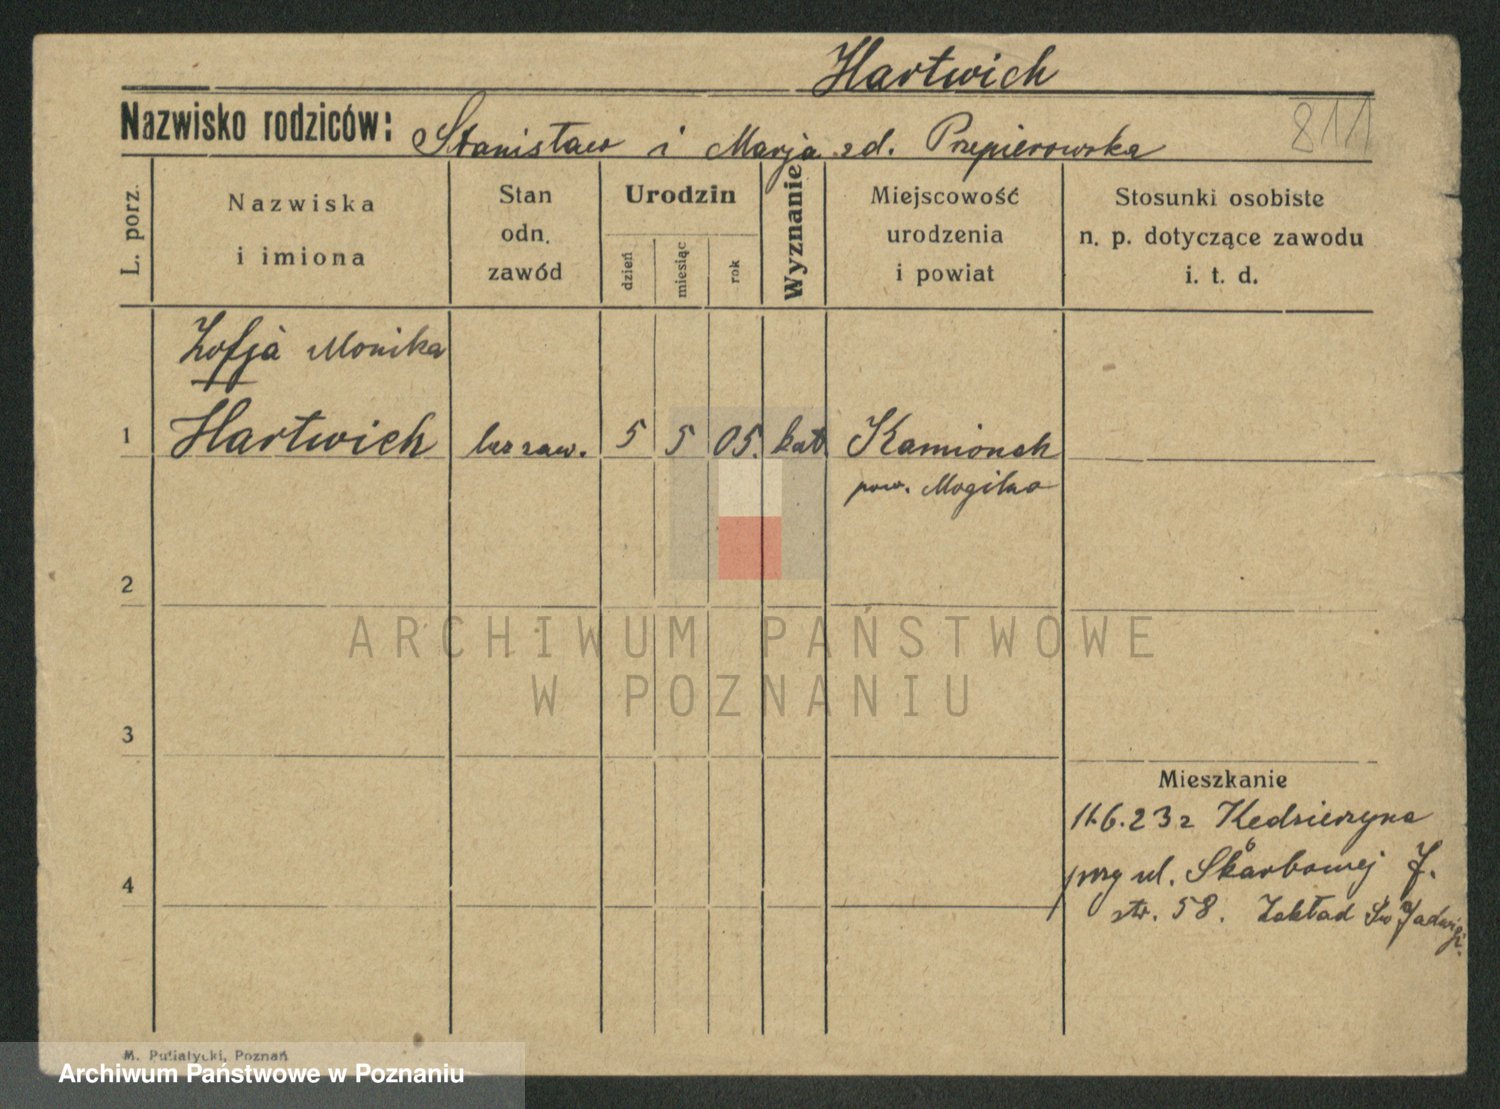 Hartwich
Nazwisko rodziców: Stanisław i Marja zd. Przepierowska
811
L. porz.
Nazwiska
i imiona
Stan
odn.
zawód
Urodzin
dzień
miesiąc
rok
Wyznanie
Miejscowość
urodzenia
i powiat
Stosunki osobiste
n. p. dotyczące zawodu
i. t. d.
Zofja Monika
1 Hartwich bez zaw. 5 5 05. kat Kamionek
pow. Mogilno
2
ARCHIWUM PAŃSTWOWE
W POZNANIU
3
Mieszkanie
11.6.23 z Kędzierzyna
4 przy ul. Skarbowej 7.
str. 58. Zakład Św Jadwigi.
M. Putiatycki, Poznań
Archiwum Państwowe w Poznaniu